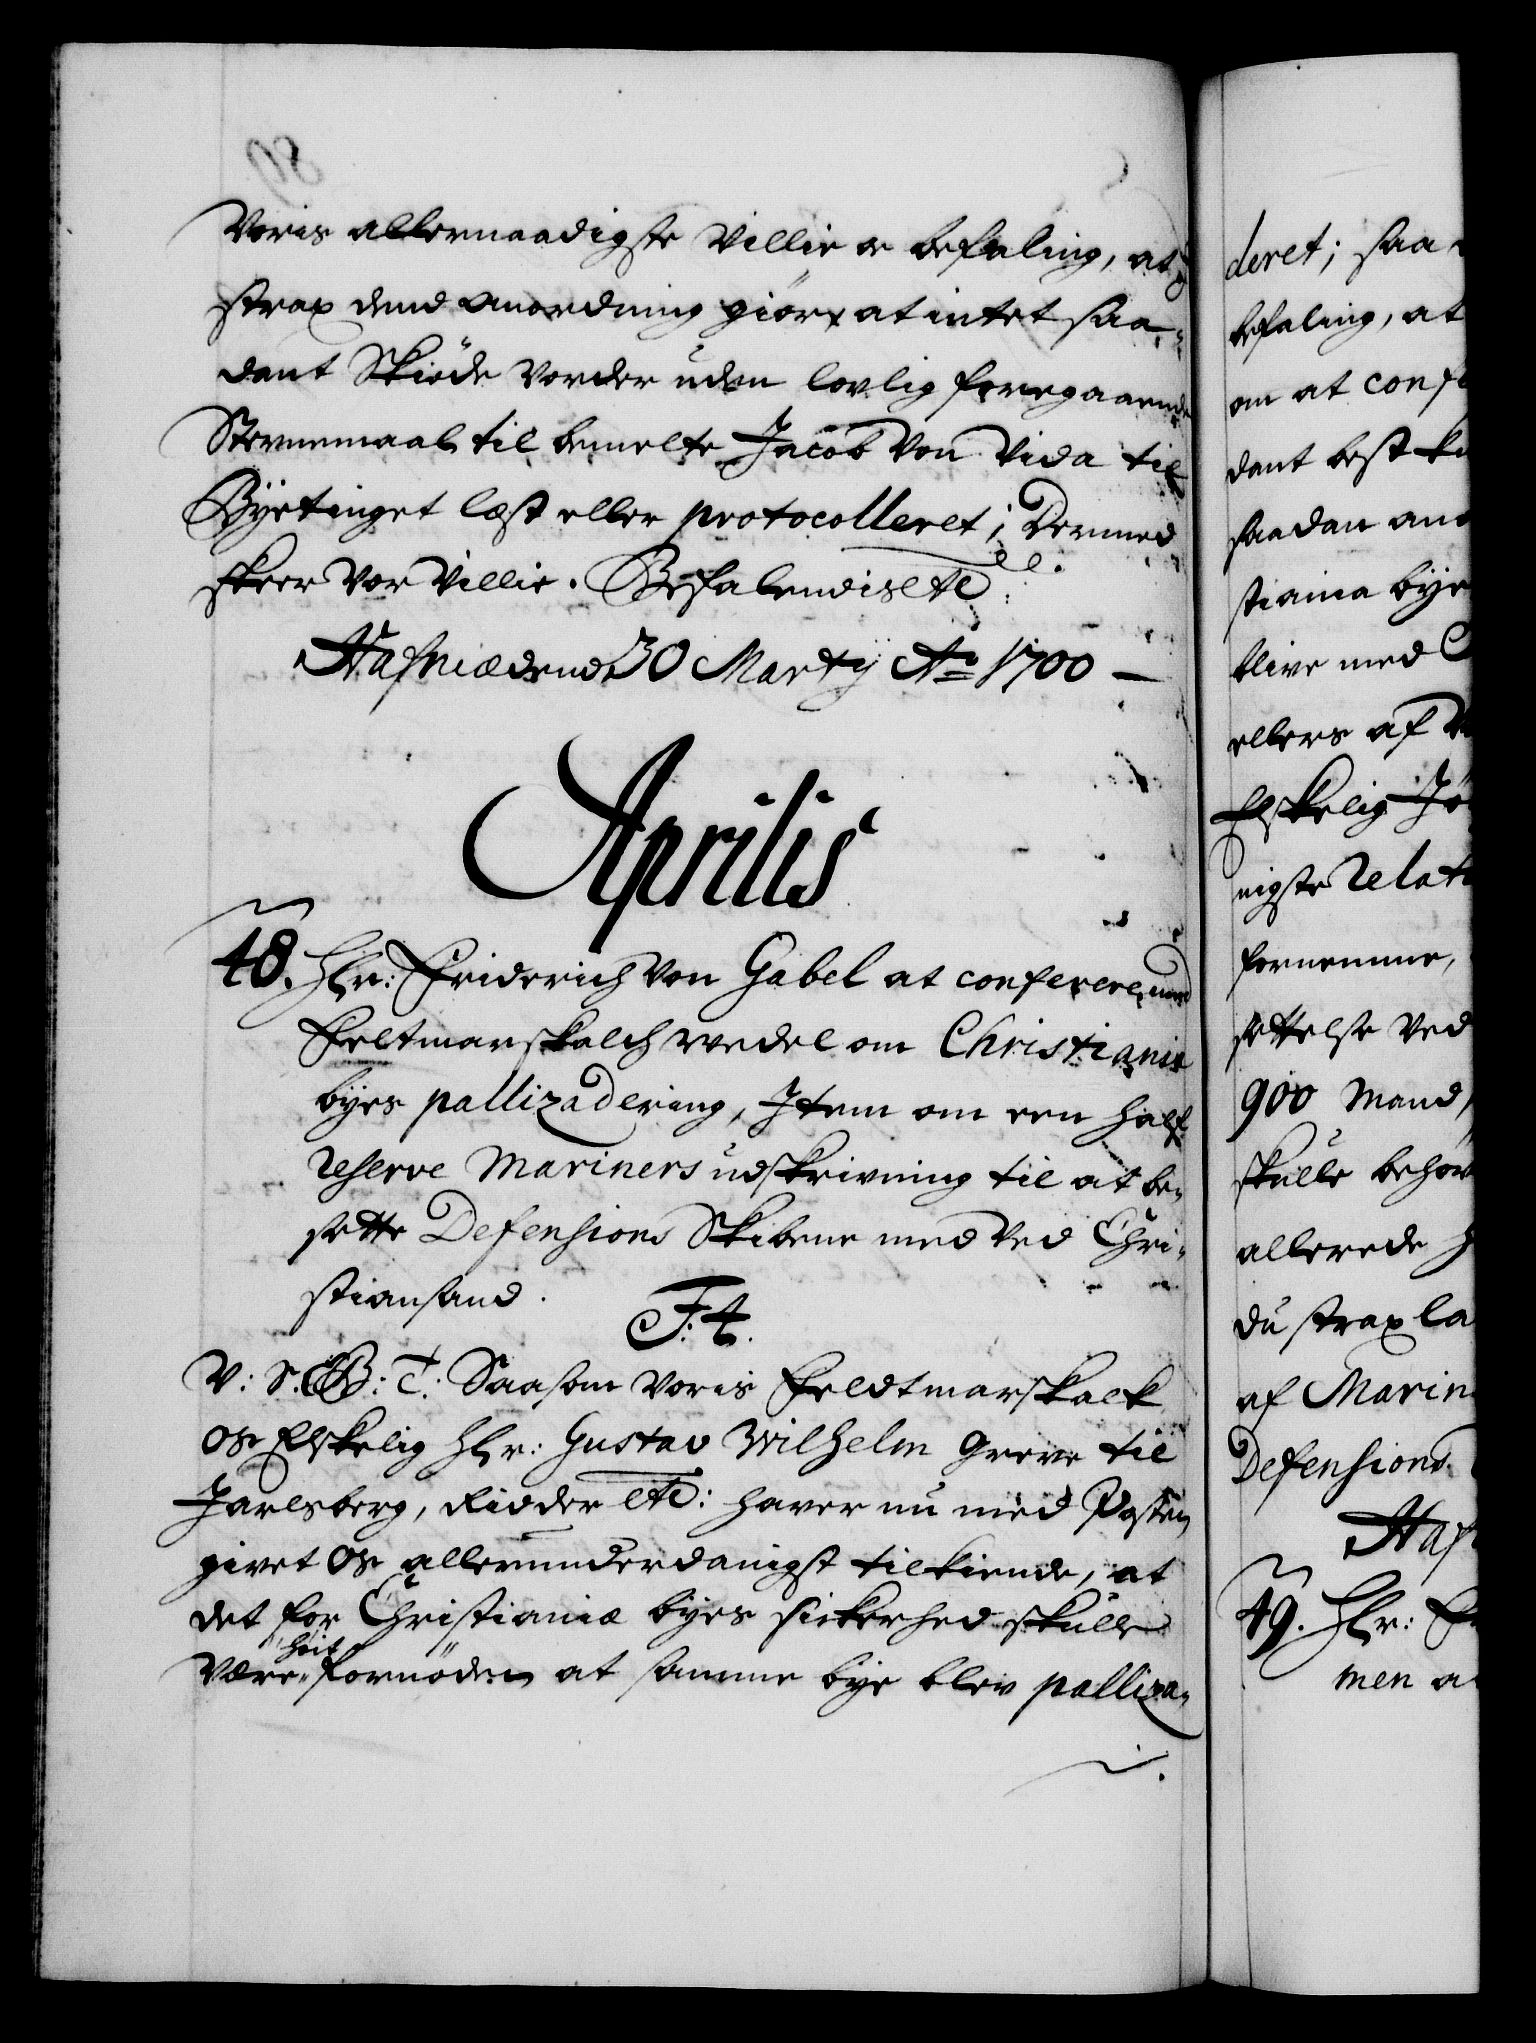 Voris allernaadigste Villie oc befaling, at
strax dend anordning giörs at intet saa-
dant Skiöde vorder uden lovlig foregaaende
Stevnemaal til bemelte Jacob Von Vida til
Byetinget læst eller protocolleret; Dermed
skeer Vor Villie. Befalendis etc:
Hafniæ dend 30 Marty Ao 1700
Aprilis
48. Hr: Friderich Von Gabel at conferere med
Feltmarskalch Wedel om Christianiæ
byes pallizadering, Item om een half
reserve Mariners udskrivning til at be-
sette Defensions Skibene med Ved Chri-
stiansand.
F: 4.
V: S. G: T: Saasom Voris Feldtmarskalk
Os Elskelig Hr: Gustav Wilhelm Greve til
Jarlsberg, Ridder etc: haver nu med Posten
givet Os allerunderdanigst tilkiende, at
det for Christianiæ byes sickerhed skulle
være höit fornöden at samme bye blev palliza-
deret; saa
befaling, at
om at conf
dant best
saadan
stiania bye
blive med
ellers af
Elskelig
nigste relat
fornemme,
settelse ved
900 Mand,
skulle behöv
allerede
du strax la
af Marin
Defensions
Haf
49. Hr:
men